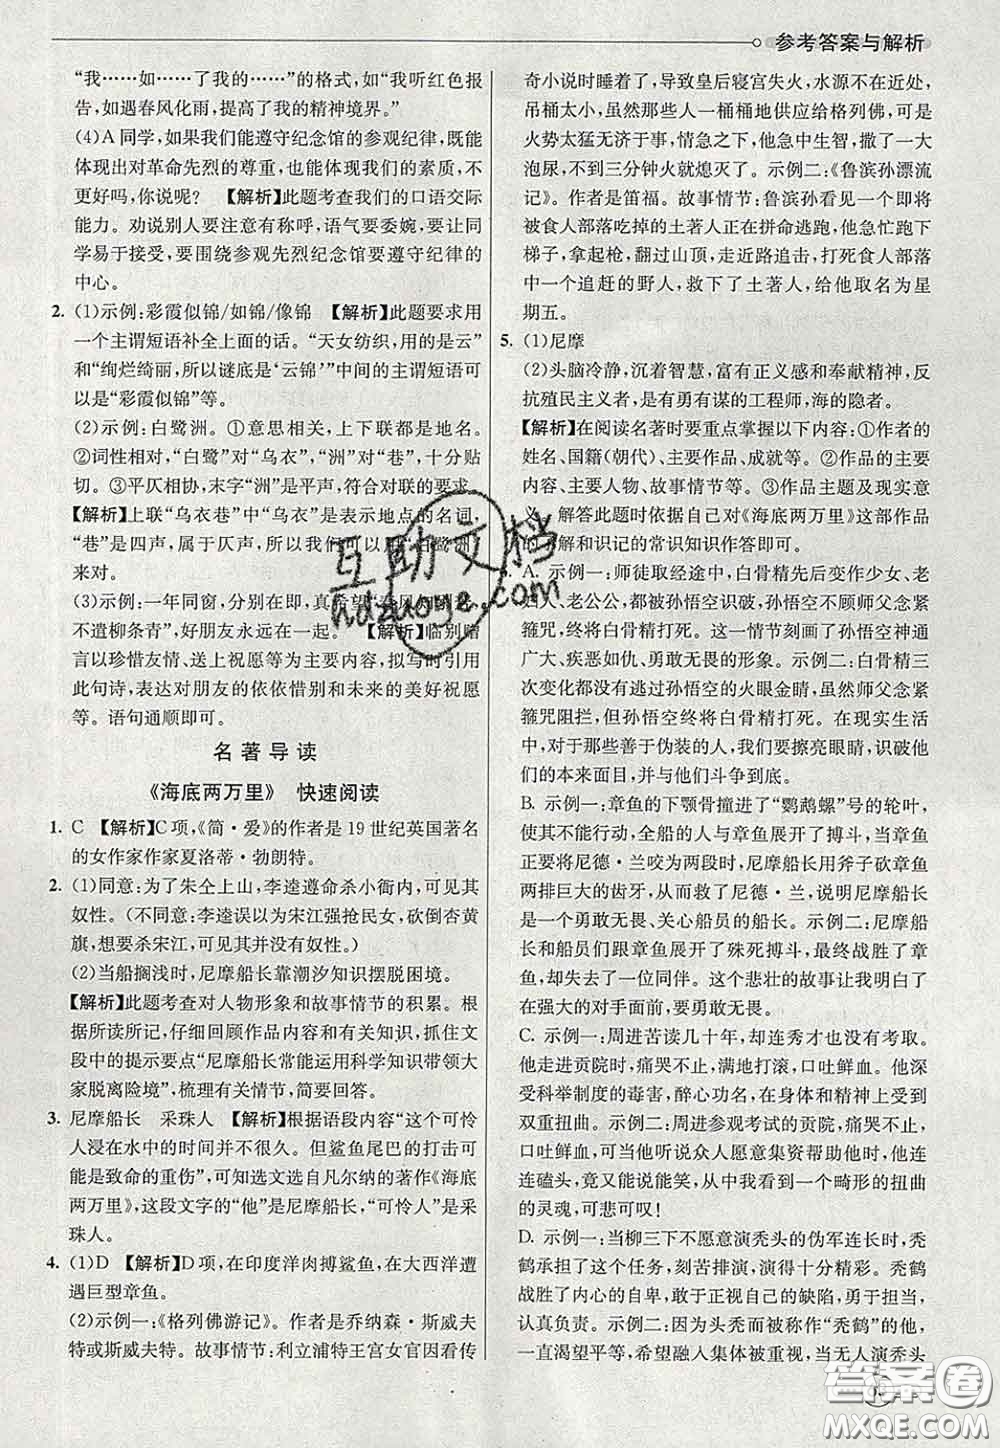 参考答案与解析
“我……如……了我的……”的格式,如“我听红色报
告,如遇春风化雨,提高了我的精神境界。”
(4)A同学,如果我们能遵守纪念馆的参观纪律,既能
体现出对革命先烈的尊重,也能体现我们的素质,不
更好吗,你说呢? 【解析】此题考查我们的口语交际
能力。劝说别人要注意有称呼,语气要委婉,要让同
学易于接受,要围绕参观先烈纪念馆要遵守纪律的
中心。
2. (1)示例:彩霞似锦/如锦/像锦 【解析】此题要求用
一个主谓短语补全上面的话。“天女纺织,用的是云”
和“绚烂绮丽,所以谜底是‘云锦’”中间的主谓短语可
以是“彩霞似锦”等。
(2)示例:白鹭洲。①意思相关,上下联都是地名。
②词性相对,“白鹭”对“乌衣”,“洲”对“巷”,十分贴
切。③平仄相协,末字“洲”是平声,符合对联的要求。
【解析】上联“乌衣巷”中“乌衣”是表示地点的名词,
“巷”是四声,属于仄声,所以我们可以用“白鹭洲”
来对。
(3)示例:一年同窗,分别在即,真希望“春风知别苦,
不遣柳条青”,好朋友永远在一起。 【解析】临别赠
言以珍惜友情、送上祝愿等为主要内容,拟写时引用
此句诗,表达对朋友的依依惜别和未来的美好祝愿
等。语句通顺即可。
名著导读
《海底两万里》 快速阅读
1. C 【解析】C项,《简·爱》的作者是19世纪英国著名
的女作家作家夏洛蒂·勃朗特。
2. (1)同意:为了朱仝上山,李逵遵命杀小衙内,可见其
奴性。(不同意:李逵误以为宋江强抢民女,砍倒杏黄
旗,想要杀宋江,可见其并没有奴性。)
(2)当船搁浅时,尼摩船长靠潮汐知识摆脱困境。
【解析】此题考查对人物形象和故事情节的积累。根
据所读所记,仔细回顾作品内容和有关知识,抓住文
段中的提示要点“尼摩船长常能运用科学知识带领大
家脱离险境”,梳理有关情节,简要回答。
3. 尼摩船长 采珠人 【解析】根据语段内容“这个可怜
人浸在水中的时间并不很久。但鲨鱼尾巴的打击可
能是致命的重伤”,可知选文选自凡尔纳的著作《海底
两万里》,这段文字的“他”是尼摩船长,“可怜人”是采
珠人。
4. (1)D 【解析】D项,在印度洋肉搏鲨鱼,在大西洋遭
遇巨型章鱼。
(2)示例一:《格列佛游记》。作者是乔纳森·斯威夫
特或斯威夫特。故事情节:利立浦特王宫女官因看传
奇小说时睡着了,导致皇后寝宫失火,水源不在近处,
吊桶太小,虽然那些人一桶桶地供应给格列佛,可是
火势太猛无济于事,情急之下,他急中生智,撒了一大
泡尿,不到三分钟火就熄灭了。示例二:《鲁滨孙漂流
记》。作者是笛福。故事情节:鲁滨孙看见一个即将
被食人部落吃掉的土著人正在拼命逃跑,他急忙爬下
梯子,拿起枪,翻过山顶,走近路追击,打死食人部落
中一个追赶的野人,救下了土著人,给他取名为星
期五。
5. (1)尼摩
(2)头脑冷静,沉着智慧,富有正义感和奉献精神,反
抗殖民主义者,是有勇有谋的工程师,海的隐者。
【解析】在阅读名著时要重点掌握以下内容:①作者的
姓名、国籍(朝代)、主要作品、成就等。②作品的主要
内容、主要人物、故事情节等。③作品主题及现实意
义。解答此题时依据自己对《海底两万里》这部作品
的了解和识记的常识知识作答即可。
A. 示例一:师徒取经途中,白骨精先后变作少女、老
妇人、老公公,都被孙悟空识破,孙悟空不顾师父念紧
箍咒,终将白骨精打死。这一情节刻画了孙悟空神通
广大、疾恶如仇、勇敢无畏的形象。示例二:白骨精三
次变化都没有逃过孙悟空的火眼金睛,虽然师父念紧
箍咒阻拦,但孙悟空终将白骨精打死。在现实生活
中,面对那些善于伪装的人,我们要擦亮眼睛,识破他
们的本来面目,并敢于与他们斗争到底。
B. 示例一:章鱼的下颚骨撞进了“鹦鹉螺”号的轮叶,
使其不能行动,全船的人与章鱼展开了搏斗,当章鱼
正要将尼德·兰咬为两段时,尼摩船长用斧子砍章鱼
两排巨大的齿牙,从而救了尼德·兰,说明尼摩船长
是一个勇敢无畏、关心船员的船长。示例二:尼摩船
长和船员们跟章鱼展开了殊死搏斗,最终战胜了章
鱼,却失去了一位同伴。这个悲壮的故事让我明白了
在强大的对手面前,要勇敢无畏。
C. 示例一:周进苦读几十年,却连秀才也没有考取。
他走进贡院时,痛哭不止,满地打滚,口吐鲜血。他
深受科举制度的毒害,醉心功名,在身体和精神上受到
双重扭曲。示例二:周进参观考试的贡院,痛哭不止,
口吐鲜血,可当他听说众人愿意集资帮助他时,他连
连磕头,竟又能说能笑,从中我看到一个畸形的扭曲
的灵魂,可悲可叹!
D. 示例一:当柳三下不愿意演秃头的伪军连长时,秃
鹤高兴地接受了这个任务,刻苦排演,十分投入。秃鹤
战胜了内心的自卑,敢于正视自己的缺陷,勇于担当,
认真负责。示例二:因为头秃而被称作“秃鹤”的他,
一直渴望平等,希望融入集体被重视,当无人演秃头
互助文档
hdzuoye.com
答案圈
MXQE.COM